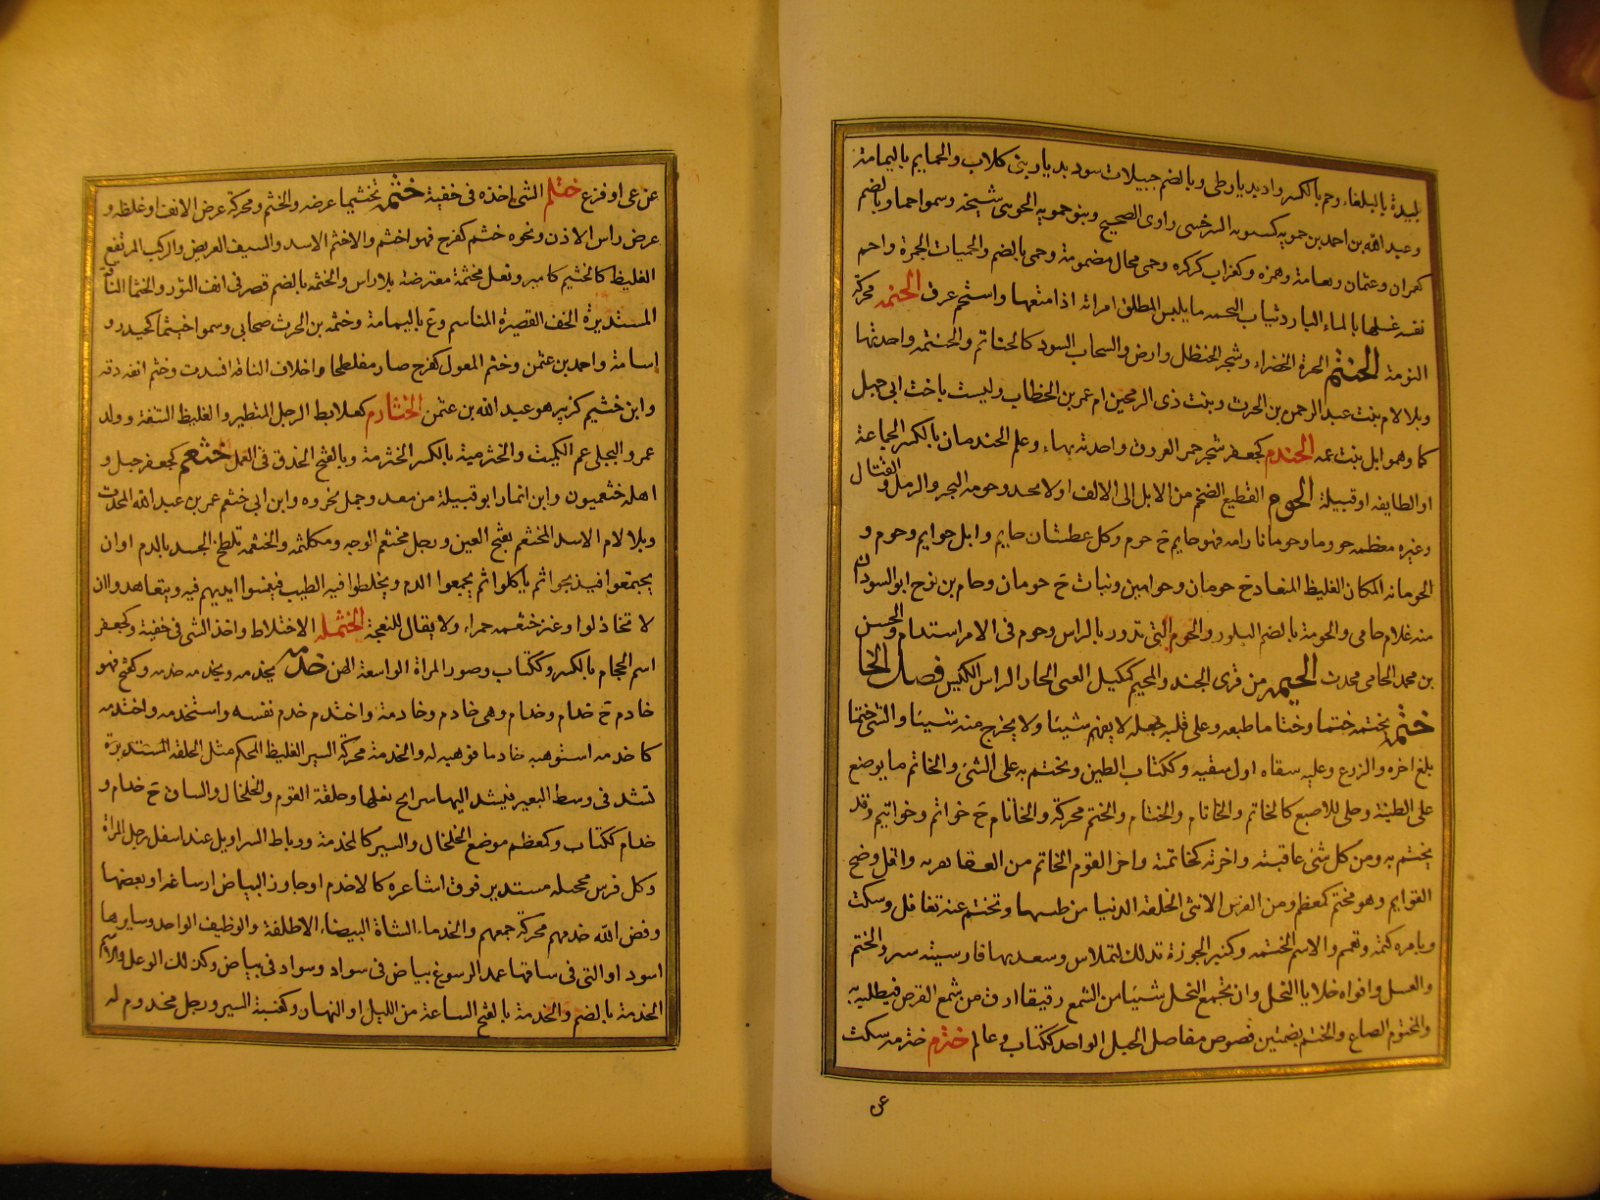 بليدة بالبلقاء وحم بالكسر واد بديار طى وبالضم جبيلات سود بديار بنى كلاب والحمايم باليمامة
وعبد الله بن احمد بن حمويه كسبويه السرخسى راوى الصحيح وبنو حمويه الحوسى شيخه وسموا حما وبالضم
كمران وعثمان ونعامة وهمزه وكغراب كركره وحمى محال مضمومة وحمى بالضم والحميات الجمرة واحم
نفسه غسلها بالماء البارد وثياب التحمه ما يلبس المطلق امراته اذا متعها واستحم عرق الحنمه محركة
البومة الحنتم الجرة الخضراء وشجر الحنظل وارض والسحاب السود كالحناتم والحنتمه واحدتها
وبلا لام بنت عبد الرحمن بن الحرث وبنت ذى الرمحين ام عمر بن الخطاب وليست باخت ابى جهل
كما وهموا بل بنت عمه الحندم كجعفر شجر حمر العروق واحدته بهاء وعلم الحندمان بالكسر الجماعة
او الطايفه او قبيلة الحوم القطيع الضخم من الابل الى الالف او لا يحد وحومه البحر والرمل والقتال
وغيره معظمه حوما وحومانا رامه فهو حايم ج حوم وكل عطشان حايم وابل حوايم وحوم و
الحومانه المكان الغليظ المنقاد ج حومان وحوامين ونبات ج حومان وحام بن نوح ابو السودان
منه غلام حامى والحومة بالضم البلور والحوم التى تدور بالراس وحوم فى الامر استدام والحسن
بن محمد الحامى محدث الحيمه من قرى الجند والمحيم كمكيل الصبى الحار الراس الكيس فصل الخا
ختمه يختمه ختما وختاما طبعه وعلى قلبه جعله لا يفهم شيئا ولا يخرج منه شيئا والشى ختما
بلغ اخره والزرع وعليه سقاه اول سقيه وككتاب الطين ويختم به على الشئ والخاتم ما يوضع
على الطينة وحلى للاصبع كالخاتم والخاتام والختام والختم محركة والخاتام ج خواتم وخواتيم وقد
يختم به ومن كل شئ عاقبته واخرته كخاتمته واخر القوم الخاتم من القفا نقرته واقل وضح
القوايم وهو مختم كمعظم ومن الفرس الانثى الحلقة الدنيا من طبيها وتختم عنه تغافل وسكت
وبامره كتمه وتعمم والاسم الختمه وكنبر الجوزة تدلك لتملاس وينقد بها فارسيته سر والختم
والعسل وافواه خلايا النحل وان يجمع النحل شيئا من الشمع رقيقا ارق من شمع القرص فيطليه به
والمختوم الصاع والختم بضمتين فصوص مفاصل الخيل الواحد ككتاب وعالم خثرم خثرمه سكت
عن
عن عى او فزع ختلم الشئ اخذه فى خفية خثمه تخثيما عرضه والخثم ومحركة عرض الانف او غلظه و
عرض راس الاذن ونحوه خثم كفرح فهو اخثم والاخثم الاسد والسيف العريض والركب المرتفع
الغليظ كالخثيم كامير ونعل مخثمة معترضة بلا راس والخثمه بالضم قصر فى انف الثور والخثما الناقة
المستديرة الخف القصيرة المناسم وع باليمامة وخثمه بن الحرث صحابى وسموا خيثما كحيدر و
اسامة واحمد بن عثمن وخثم المعول كفرح صار مفلطحا واخلاف الناقه انسدت وخثم انفه دقه
وابن خثيم كزبير هو عبد الله بن عثمن الخثارم كعلابط الرجل المتطير والغليظ الشفة ووالد
عمرو البجلى عم الكميت والخثرمية بالكسر الخثرمة وبالفتح الخذق فى العمل خثعم كجعفر جبل و
اهله خثعميون وابن انمار ابو قبيلة من معد وجمل نحروه وابن ابى خثعم عمر بن عبد الله المحدث
وبلا لام الاسد المخثعم بفتح العين ورجل مخثعم الوجه ومكلثمه والخثعمه تلطخ الجسد بالدم او ان
يجتمعوا فيذبحوا ثم ياكلوا ثم يجمعوا الدم ويخلطوا فيه الطيب فيغمسوا ايديهم فيه ويتعاهدوا ان
لا تخاذلوا وعنز خثعمه حمراء ولا يقال للنعجة الخثلمه الاختلاط واخذ الشى فى خفية وكجعفر
اسم الحجام بالكسر وككتاب وصور المراة الواسعة الهن خدمه يخدمه ويخدمه خدمه وكفتح فهو
خادم ج خدام وخدام وهى خادم وخادمة واختدم خدم نفسه واستخدمه واختدمه
كاخدمه استوهبه خادما فوهبه له والخدمة محركة السير الغليظ المحكم مثل الحلقه المستديرة
تشد فى وسط البعير فيشد اليها سرايح نعلها وحلقة القوم والخلخال والساق ج خدام و
خدام ككتاب وكمعظم موضع الخلخال والسير كالمخدمة ورباط السراويل عند اسفل رجل المراة
وكل فرس محجله مستدير فوق اشاعره كالاخدم او جاوز البياض ارساغه او بعضها
وفض الله خدمهم محركة جمعهم والخدماء الشاة البيضاء الاظلفة والوظيف الواحد وسايرها
اسود او التى فى ساقها عند الرسوغ بياض فى سواد وسواد فى بياض وكذلك الوعل والاسم
الخدمة بالضم والخدمة بالفتح الساعة من الليل او النهار وكعنبة السير ورجل مخدوم له